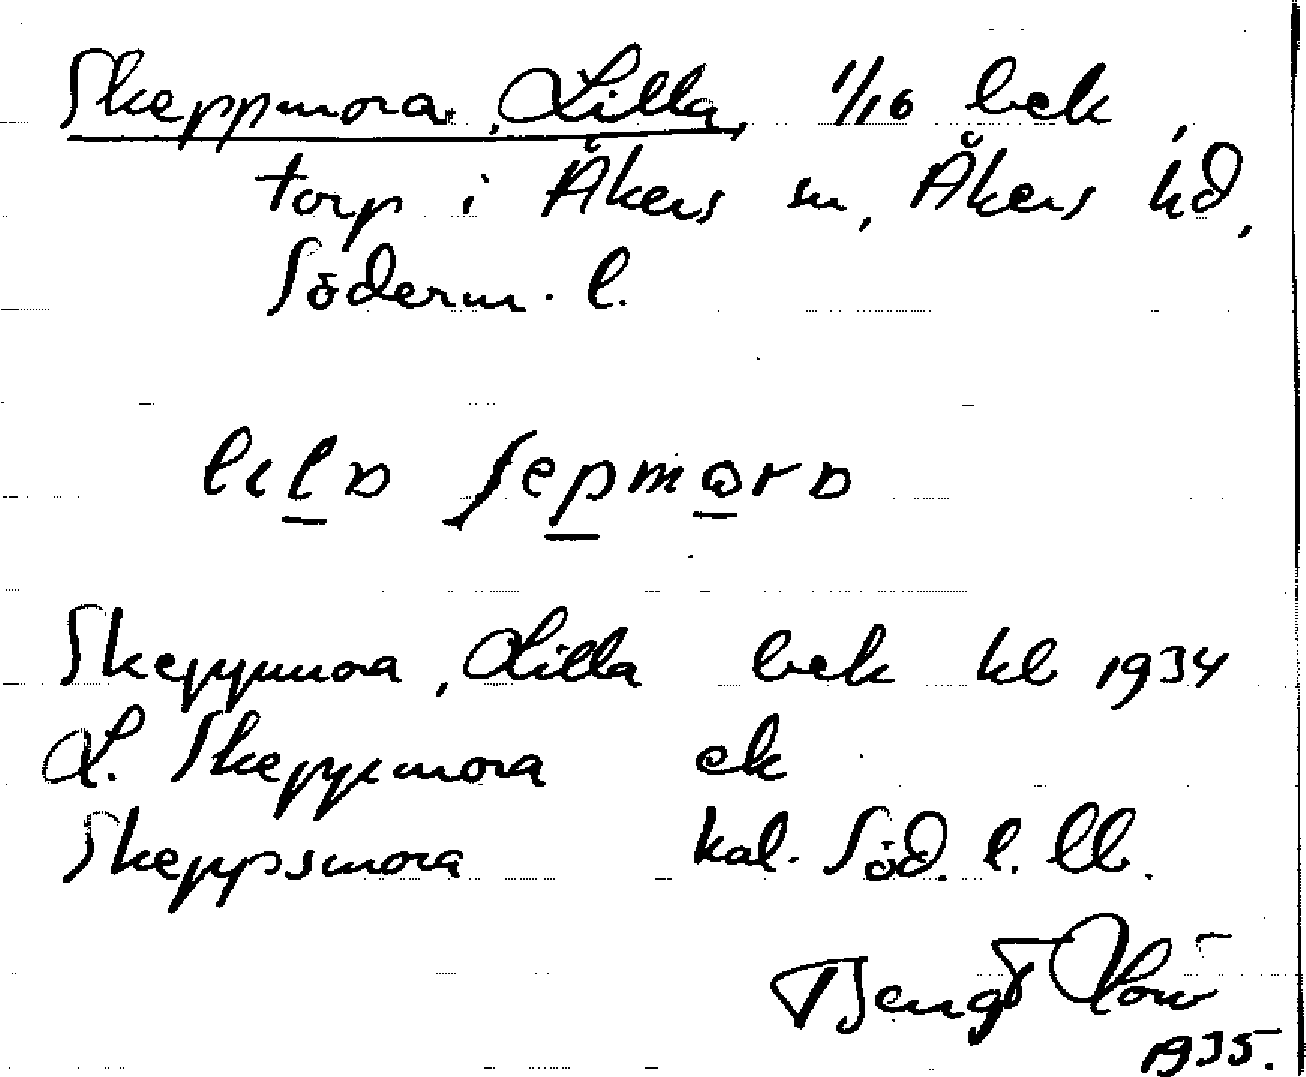 Skeppmora, Lilla, 1/16 bek,
torp i Åkers sn, Åkers hd,
Söderm. l.
Skeppmora, Lilla bek kb 1934
L. Skeppsmora ek
Skeppsmora kal. Söd. l. ll.
Bengt
1935.